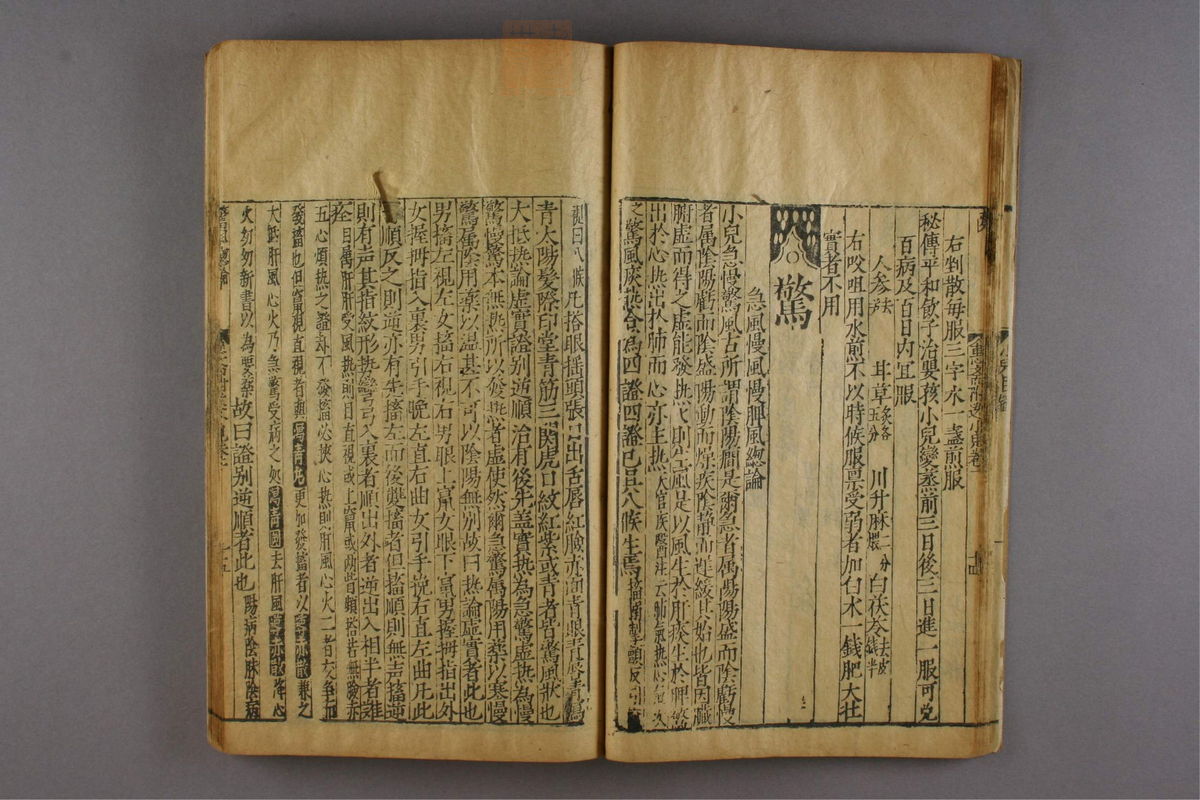 右剉散每服三字水一盞煎服
秘傳平和飲子治嬰孩小兒變蒸前三日後三日進一服可免
百病及百日內宜服
人參 甘草 川升麻二分 白茯苓去皮
右㕮咀用水煎不以時候服禀受弱者加白术一錢肥大壯
實者不用
驚
急風慢風慢脾風總論
小兒急慢驚風古所謂陰陽癎是爾急者屬陽陽盛而陰虧慢
者屬陰陽虧而陰盛陽動而燥疾陰靜而遲緩其始也皆因臟
腑虛而得之虛能發熱熱則生風是以風生於肝痰生於脾驚
出於心熱出於肺而心亦主熱
之驚風痰熱合為四證四證已具八候生焉搐搦掣顫反引竄
視曰八候凡搭眼搖頭張口出舌唇紅臉赤面青眼青唇青瀉
青太陽髮際印堂青筋三關虎口紋紅紫或青者皆驚風狀也
大抵熱論虛實證別逆順治有後先蓋實熱為急驚虛熱為慢
驚慢驚本無熱所以發熱者虛使然爾急驚屬陽用藥以寒慢
驚屬陰用藥以溫甚不可以陰陽無別故曰熱論虛實者此也
男搐左視左女搐右視右男眼上竄女眼下竄男握拇指出外
女握拇指入裏男引手挽左直右曲女引手挽右直左曲凡此
皆順反之則逆亦有先搐左而後雙搐者但搐順則無声搐逆
則有声其指紋形勢彎弓入裏者順出外者逆出入相半者難
痊目屬肝肝受風熱則目直視或上竄或兩眥頻搭若無臉赤
五心煩熱之證
發搐也但竄視直視者與瀉青丸更加發搐者以導赤散兼之
大抵肝風心火乃急驚受病之処瀉青圓去肝風導赤散降心
火勿勿新書以為要藥故曰證別逆順者此也陽病陰脉陰病